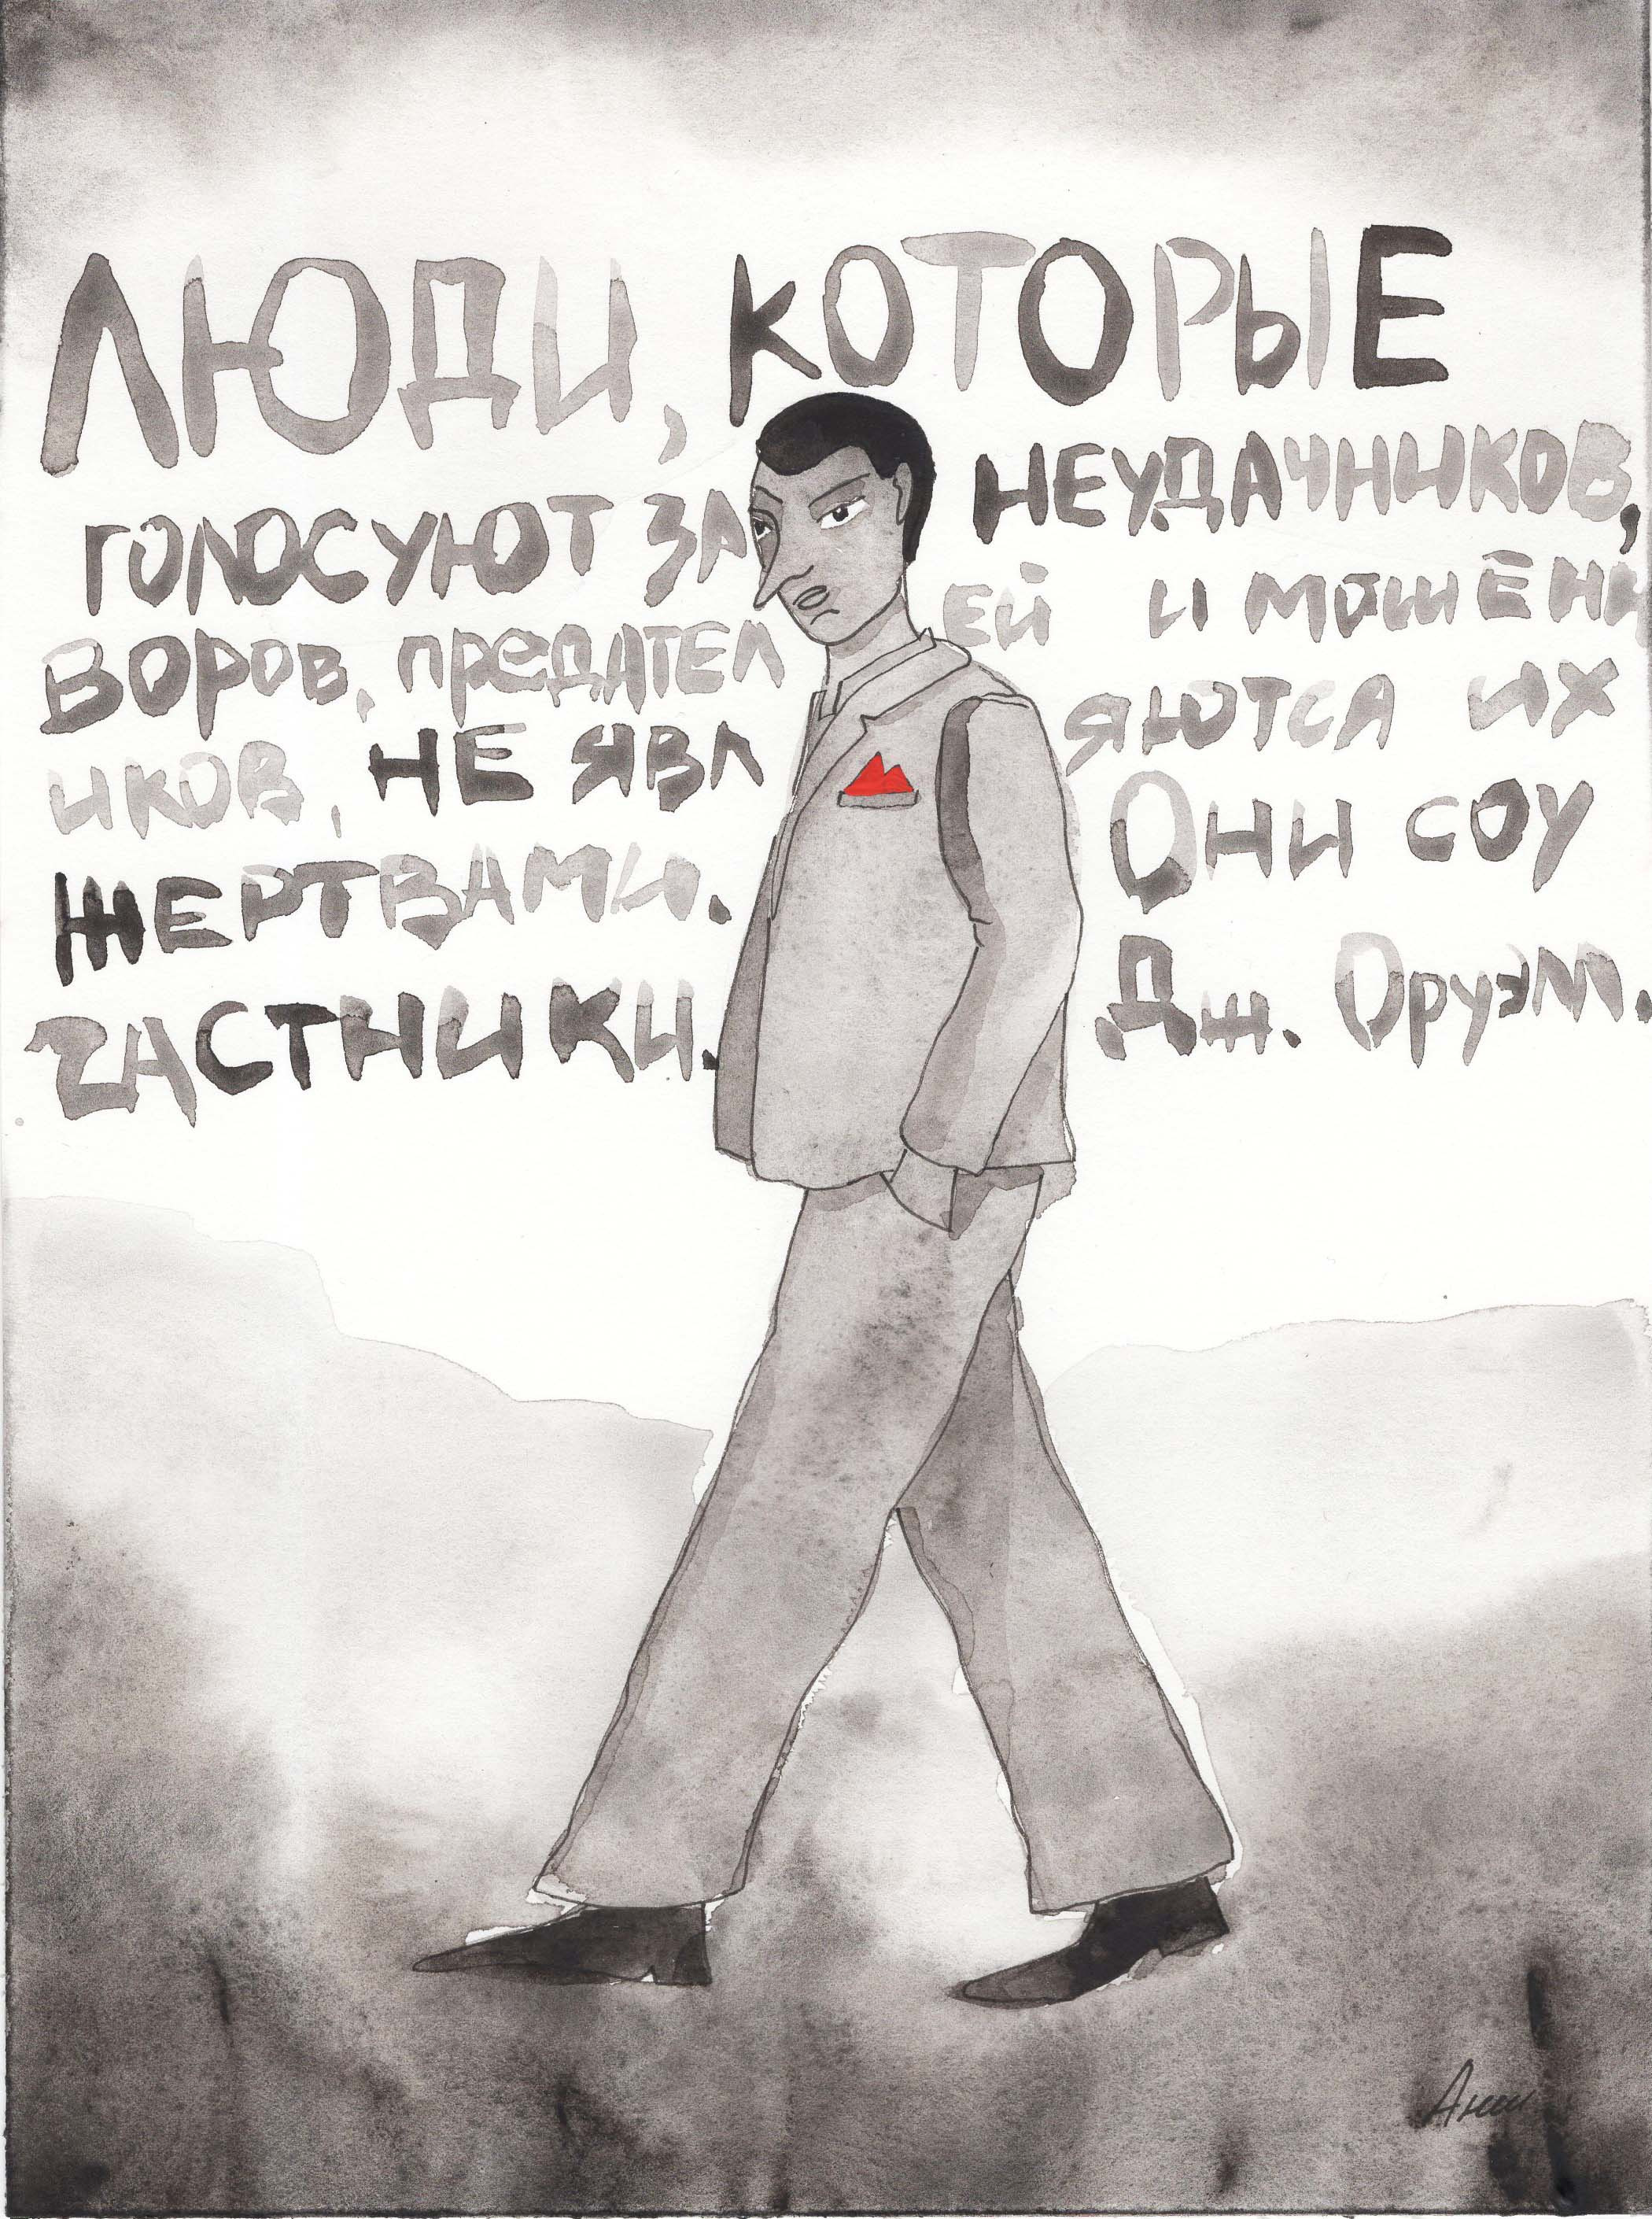 ЛЮДИ, КОТОРЫЕ
ГОЛОСУЮТ ЗА НЕУДАЧНИКОВ,
ВОРОВ, ПРЕДАТЕЛ ЕЙ И МОШЕНН
ИКОВ, НЕ ЯВЛ ЯЮТСЯ ИХ
ЖЕРТВАМИ. Они СОУ
ЧАСТНИКИ. Дж. Оруэлл.